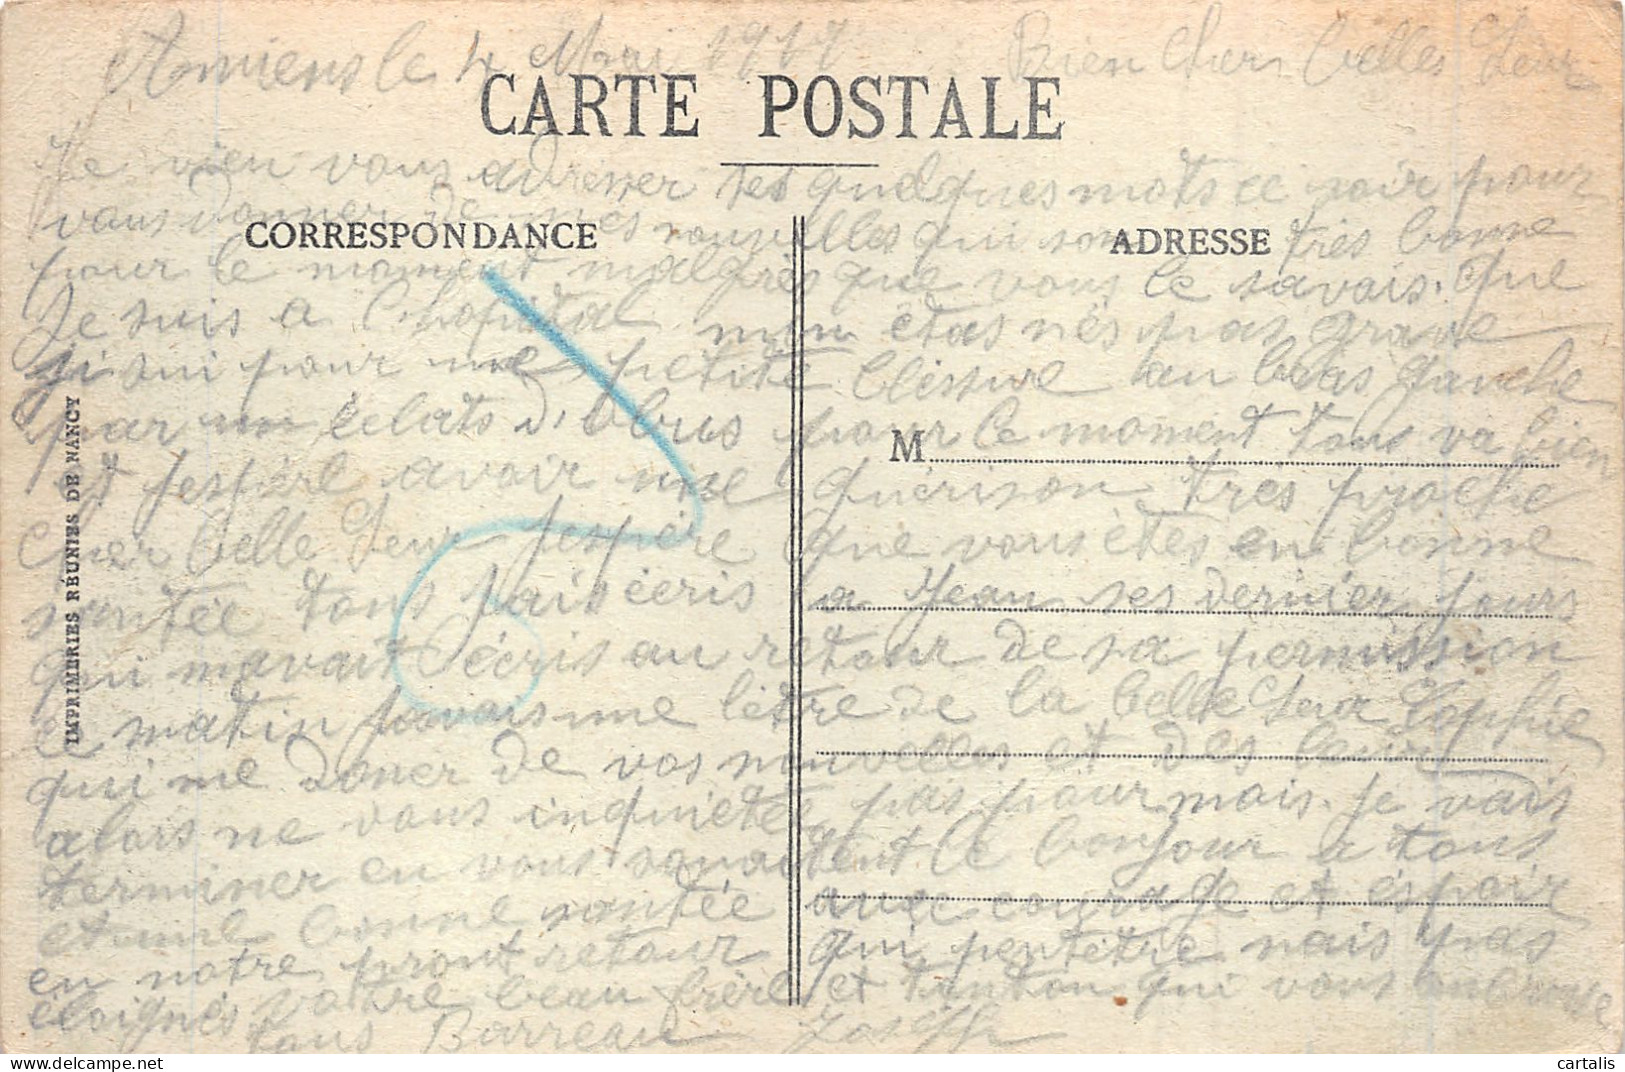 Amiens le 4 Mai 1917 Bien Cher belles Seur
CARTE POSTALE
Je vien vous adresser ses quelques mots ce soir pour
vous donner de mes nouvelles qui son très bonne
CORRESPONDANCE
ADRESSE
pour le moment malgrès que vous le savais que
Je suis a l'hopital mon etas nès pas grave
ji sui pour une petite blessure au bras gauche
par un éclats d'obus pour le moment tous va bien
M
et jespère avoir une guérison très proche
Cher belle Seur jespère que vous êtes en bonne
santée tous jais écris a Jean ses dernier jours
qui mavait écris au retour de sa permission
ce matin javais une lètre de la belle Seur Sophie
qui me doner de vos nouvelles et des leur
alors ne vous inquiéte pas pour mois. Je vais
terminer en vous souaitent le bonjour a tous
et une bonne santée avec courage et éspoir
en notre pront retour qui peutètre nais pas
éloignés votre beau frère et tonton qui vous embrasse
tous Barreau Joseph
IMPRIMERIES RÉUNIES DE NANCY
cartalis